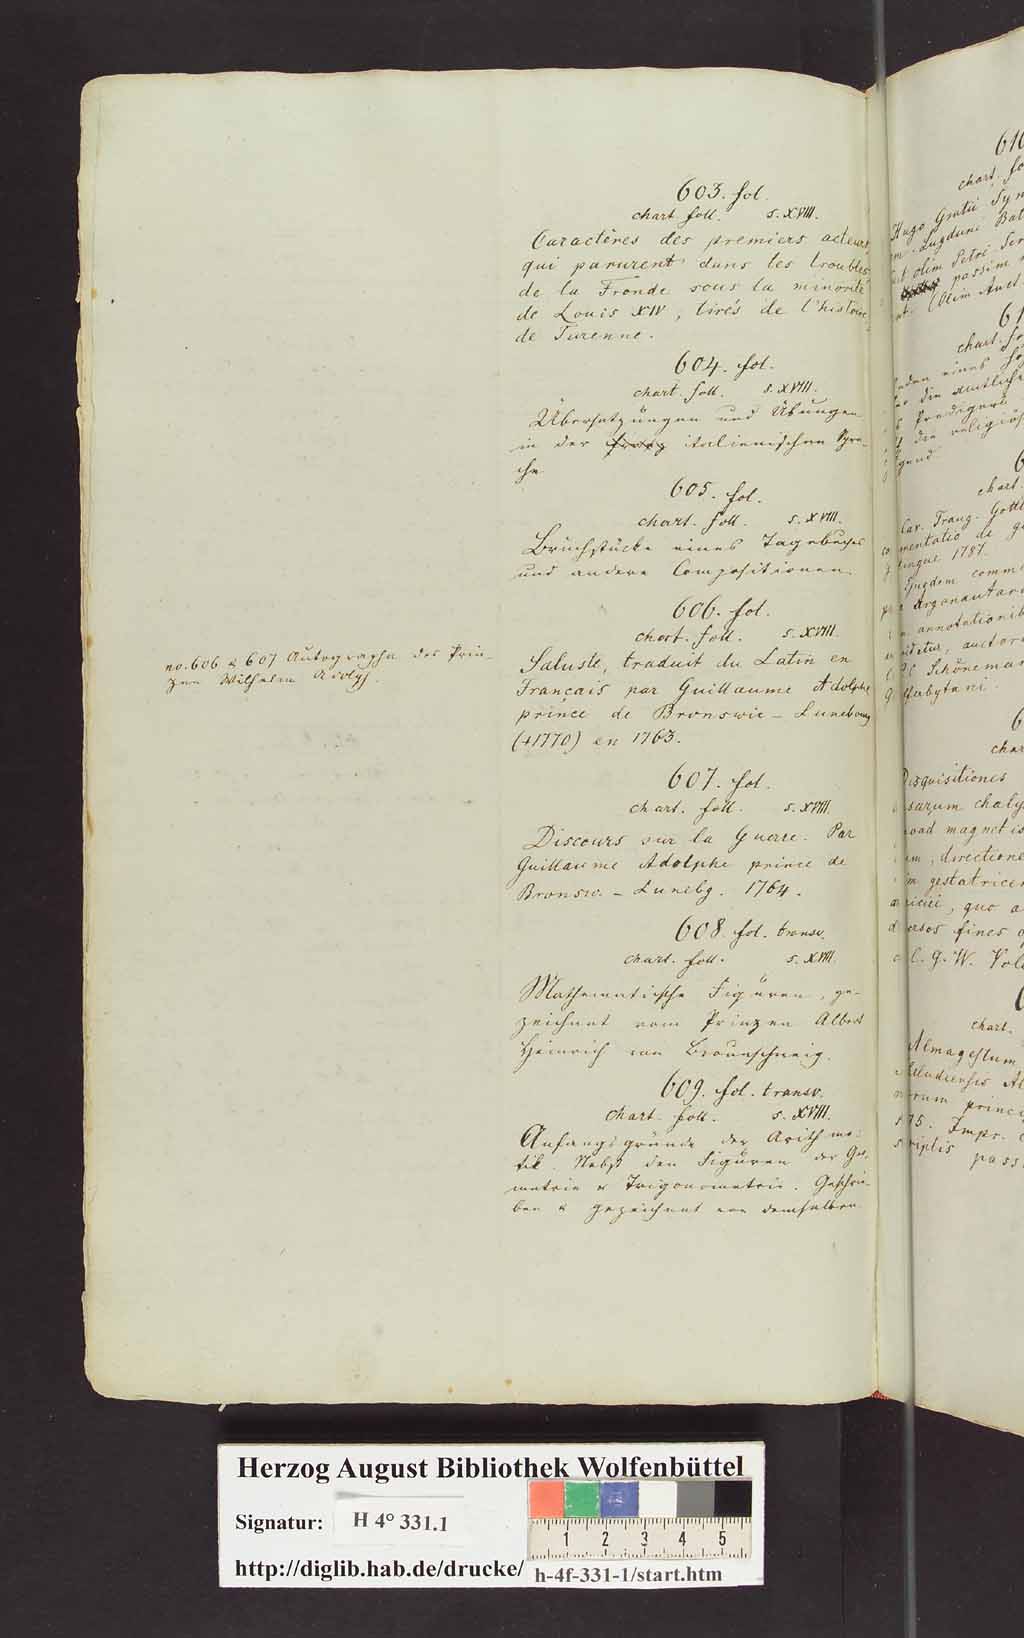 603. fol.
chart. foll. s. XVIII.
Caractères des premiers acteurs
qui parurent dans les troubles
de la Fronde sous la minorité
de Louis XIV, tirés de l'histoire
de Turenne.
604. fol.
chart. foll. s. XVIII.
Übersetzungen und Übungen
in der italienischen Spra-
che.
605. fol.
chart. foll. s. XVIII.
Bruchstücke eines Tagebuches
und andere Compositionen.
606. fol.
chart. foll. s. XVIII.
no. 606 & 607 Autographa des Prin-
zen Wilhelm Adolph.
Saluste, traduit du Latin en
Français par Guillaume Adolphe
prince de Bronswic - Lunebourg
(+1770) en 1763.
607. fol.
chart. foll. s. XVIII.
Discours sur la Guerre. Par
Guillaume Adolphe prince de
Bronsw. - Lunebg. 1764.
608. fol. transv.
chart. foll. s. XVIII.
Mathematische Figuren, ge-
zeichnet vom Prinzen Albert
Heinrich von Braunschweig.
609. fol. transv.
chart. foll. s. XVIII.
Anfangsgründe der Arithme-
tik. Nebst den Figuren der Geo-
metrie & Trigonometrie. Geschrie-
ben & gezeichnet von demselben.
610
chart. fo
Hugo Grotii Syn
Lugduni Bat
olim Petri Scr
passim
(Olim Aud.
61
chart. fo
eines
die amtliche
Predigers
die religiös
gend
6
chart.
Car. Traug. Gottl
mentatio de g
tingue 1787.
Ejusdem comm
Argonautar
annotationib
videtur, auctore
Schönemar
Guelferbytani.
6
char
Disquisitiones
sarum chaly
oad magnetis
um, directione
gestatricem
quo a
ersos fines
l. G. W. Vol
6
chart.
Almagestum
Al
rum princi
Impr.
scriptis pass
Herzog August Bibliothek Wolfenbüttel
Signatur: H 4° 331.1
1 2 3 4 5
http://diglib.hab.de/drucke/ h-4f-331-1/start.htm